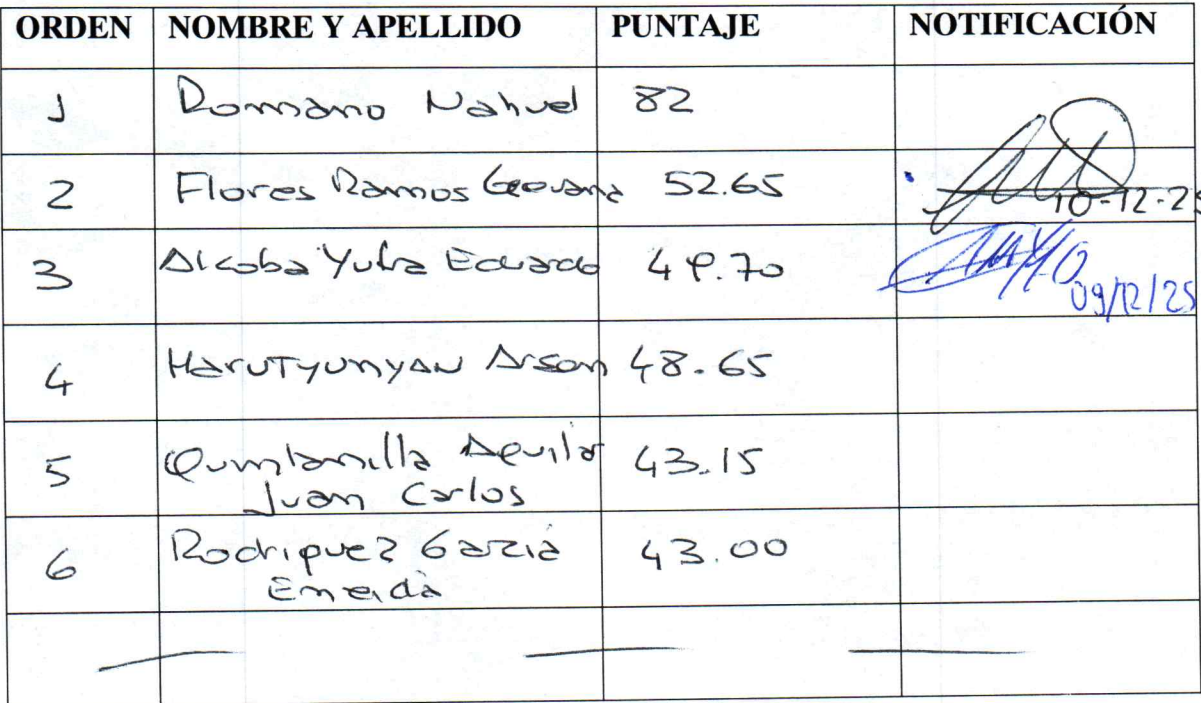 ORDEN NOMBRE Y APELLIDO PUNTAJE NOTIFICACIÓN
1 Romano Nahuel 82
2 Flores Ramos Geovana 52.65
10-12-25
3 Alcoba Yufra Eduardo 49.70
09/12/25
4 HaruTyunyan Arsen 48.65
5 Quintanilla Aguilar 43.15
Juan Carlos
6 Rodriguez Garzia 43.00
Eneida